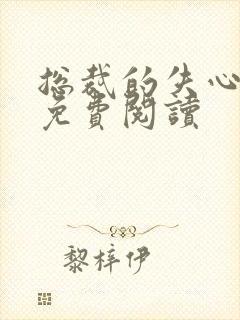 总裁的失心
免費閱讀
黎梓伊